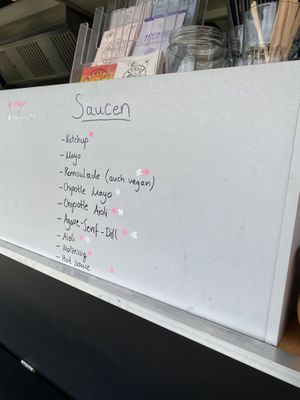 Saucen
- Ketchup
- Mayo
- Remoulade (auch vegan)
- Chipotle Mayo
- Chipotle Aioli
- Agave-Senf-Dill
- Aioli
- Malzessig
- Hot Sauce